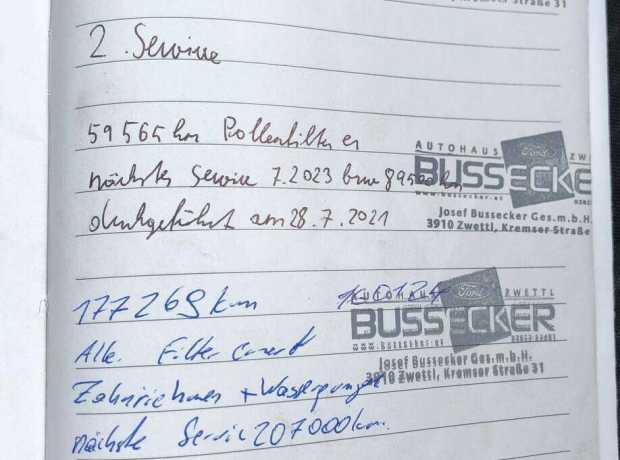 Kremser Straße 31
2. Service
59565 km Pollenfilter er
nächstes Service 7.2023 bzw 89500 km
durchgeführt am 28.7.2021
AUTOHAUS Ford ZW
BUSSECKER
www.bussecker.at
Josef Bussecker Ges.m.b.H.
3910 Zwettl, Kremser Straße
177269 km
AUTOHAUS Ford ZWETTL
BUSSECKER
Josef Bussecker Ges.m.b.H.
3910 Zwettl, Kremser Straße 31
Alle Filter erneut
Zahnriehmen + Wasserpumpe
nächste Servic 207000 km.